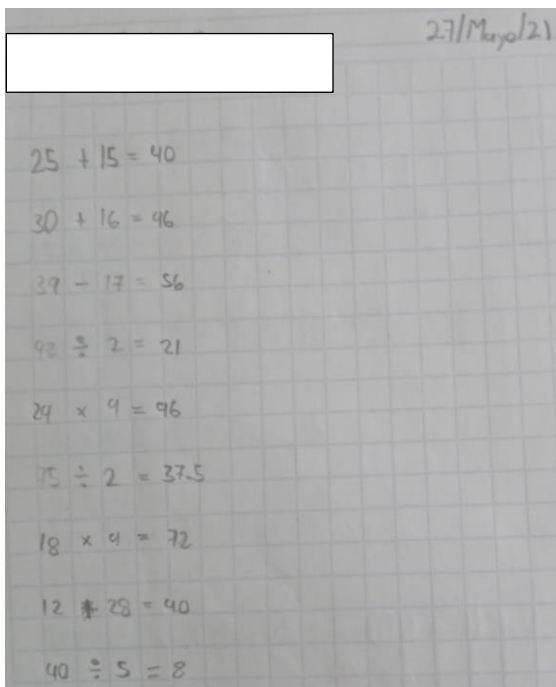 27/Mayo/21
25 + 15 = 40
30 + 16 = 46
39 - 17 = 56
42 ÷ 2 = 21
24 × 4 = 96
75 ÷ 2 = 37.5
18 × 4 = 72
12 + 28 = 40
40 ÷ 5 = 8